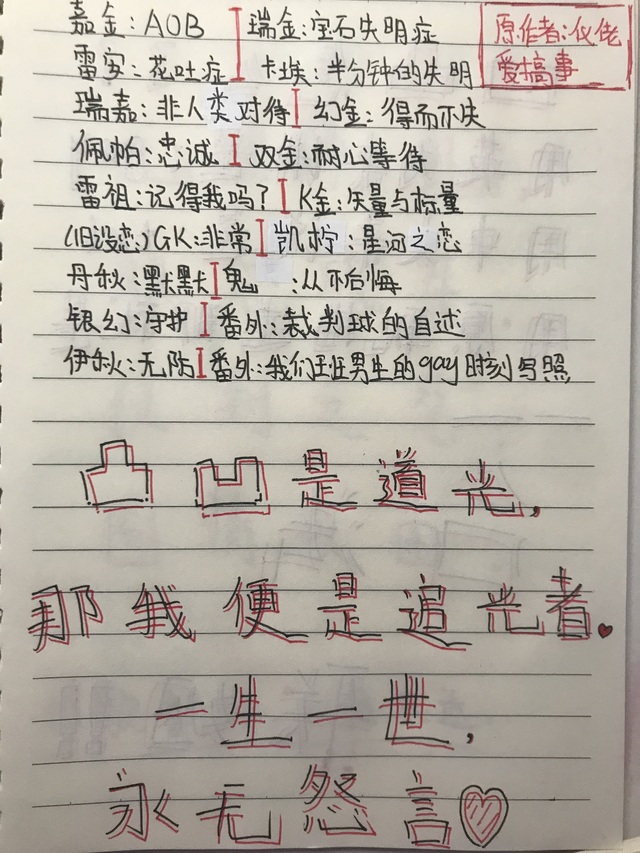 嘉金:AOB 瑞金:宝石失明症
雷安:花吐症 卡埃:半分钟的失明
原作者:仪佬
爱搞事
瑞嘉:非人类对待 幻金:得而不失
佩帕:忠诚 双金:耐心等待
雷祖:记得我吗? K金:矢量与标量
(旧没恋)GK:非常 凯柠:星河之恋
丹秋:默默 鬼 :从不后悔
银幻:守护 番外:裁判球的自述
伊秋:无防 番外:我们班男生的gay时刻写照
凸凹是道光,
那我便是追光者.
一生一世,
永无怨言